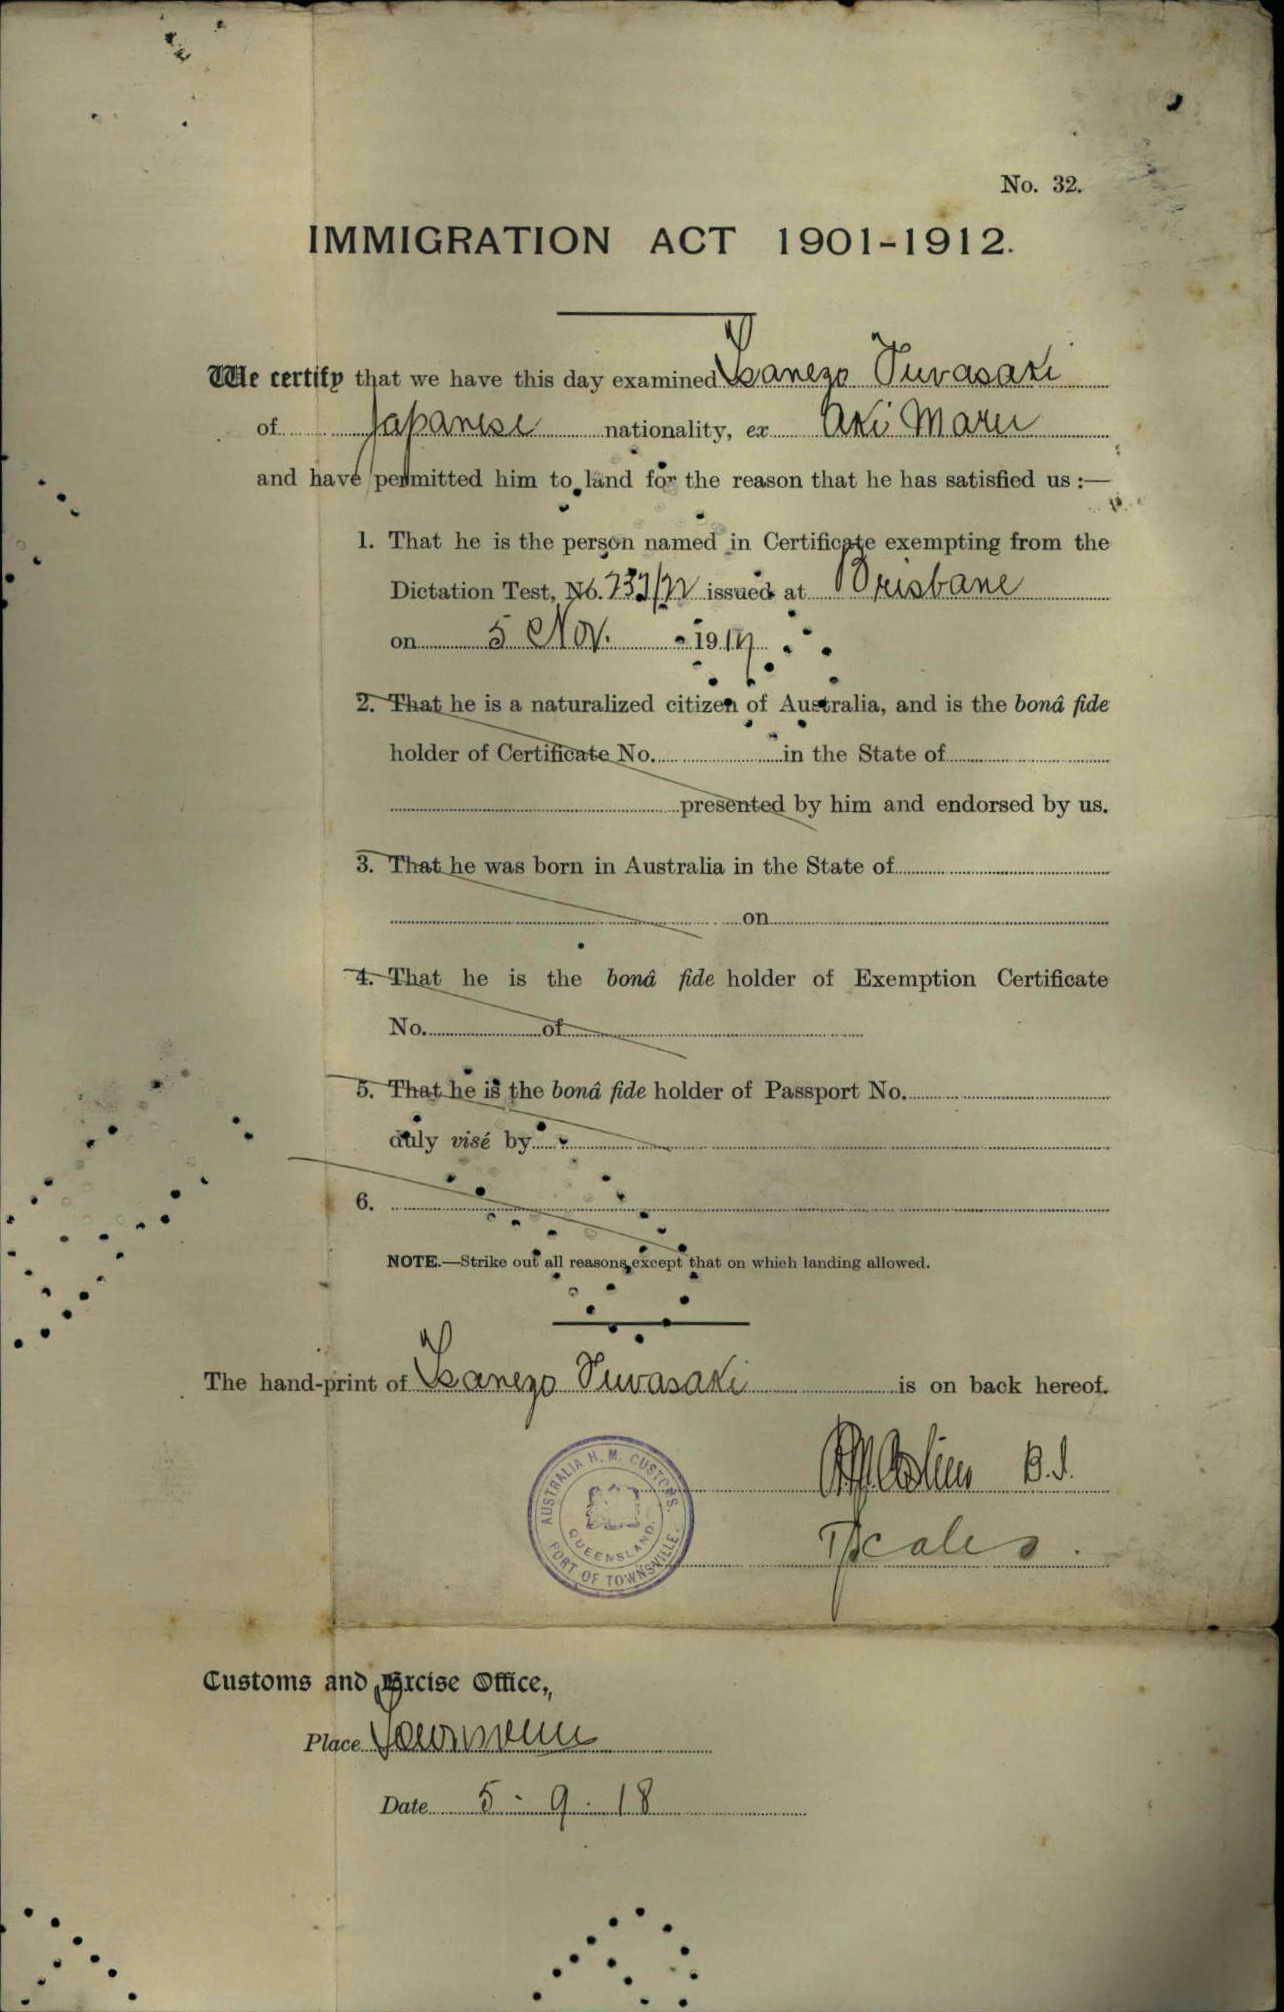 No. 32.
IMMIGRATION ACT 1901-1912.
We certify that we have this day examined Isanezo Iuvasaki
of Japanese nationality, ex Aki Maru
and have permitted him to land for the reason that he has satisfied us :—
1. That he is the person named in Certificate exempting from the
Dictation Test, No. issued at Brisbane
on 5 Nov. 1917
2. That he is a naturalized citizen of Australia, and is the bonâ fide
holder of Certificate No. in the State of
presented by him and endorsed by us.
3. That he was born in Australia in the State of
on
4. That he is the bonâ fide holder of Exemption Certificate
No. of
5. That he is the bonâ fide holder of Passport No.
duly visé by
6.
NOTE.—Strike out all reasons except that on which landing allowed.
The hand-print of Isanezo Iuvasaki is on back hereof.
B.I.
AUSTRALIA H. M. CUSTOMS.
QUEENSLAND.
PORT OF TOWNSVILLE.
Scales.
Customs and Excise Office,
Place Townsville
Date 5 - 9 - 18